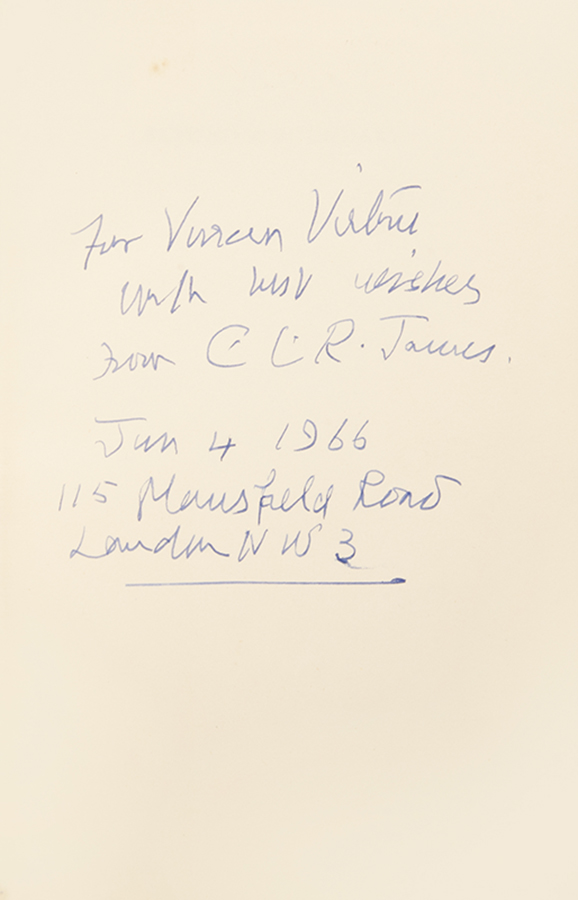 For Vivian Virtue
with best wishes
from C. L. R. James.
Jun 4 1966
115 Mansfield Road
London N W 3